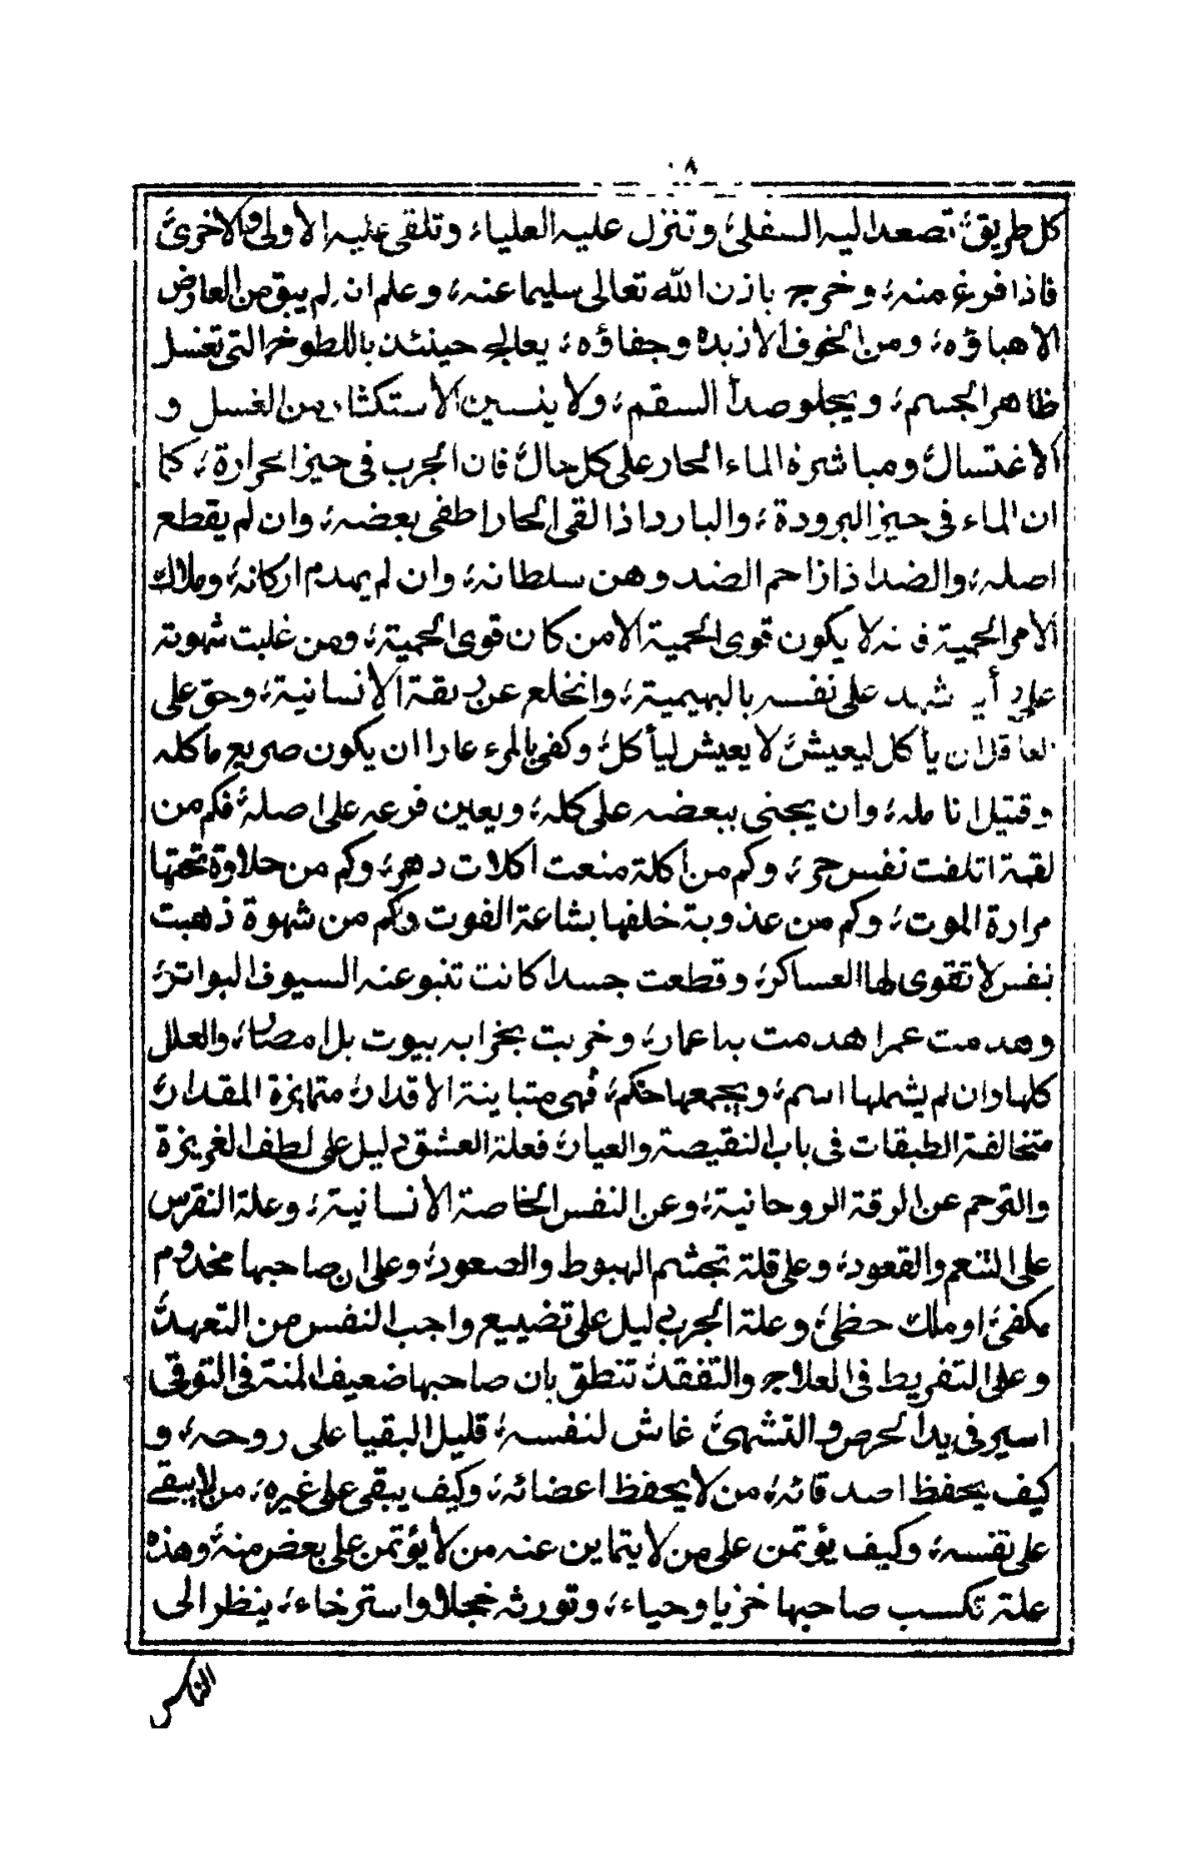 ٨
كل طريق؛ تصعد اليه السفلى؛ وتنزل عليه العلياء وتلقى عليه الأولى والاخرى؛
فاذا فرغ منه؛ وخرج باذن الله تعالى سليما عنه؛ وعلم ان لم يبق من العارض
الا هباؤه؛ ومن الخوف الا زبده وجفاؤه؛ يعالج حينئذ باللطوخ التى تغسل
ظاهر الجسم؛ ويجلو صدأ السقم؛ ولا ينسين الاستكثار من الغسل و
الاغتسال؛ ومباشرة الماء الحار على كل حال؛ فان الجرب فى حيز الحرارة؛ كما
ان الماء فى حيز البرودة؛ والبارد اذا لقى الحار اطفى بعضه؛ وان لم يقطع
اصله؛ والضد اذا زاحم الضد وهن سلطانه؛ وان لم يهدم اركانه؛ وملاك
الامر الحمية فانه لا يكون قوى الحمية الا من كان قوى الحمية؛ ومن غلبت شهوته
على رأيه شهد على نفسه بالبهيمية؛ وانخلع عن ربقة الانسانية؛ وحق على
العاقل ان يأكل ليعيش؛ لا يعيش ليأكل؛ وكفى بالمرء عارا ان يكون صريع مأكله
وقتيل انامله؛ وان يجنى ببعضه على كله؛ ويعين فرعه على اصله؛ فكم من
لقمة اتلفت نفس حر؛ وكم من أكلة منعت اكلات دهر؛ وكم من حلاوة تحتها
مرارة الموت؛ وكم من عذوبة خلفها بشاعة الفوت وكم من شهوة ذهبت
بنفس لا تقوى لها العساكر؛ وقطعت جسدا كانت تنبو عنه السيوف البواتر؛
وهدمت عمرا هدمت به اعمار؛ وخربت بخرابه بيوت بل امصار؛ والعلل
كلها وان لم يشملها اسم؛ ويجمعها حكم؛ فهى متباينة الاقدار؛ متمايزة المقدار؛
متخالفة الطبقات فى باب النقيصة والعيار؛ فعلة العشق دليل على لطف الغريزة
والترحم عن الرقة الروحانية؛ وعن النفس الخاصة الانسانية؛ وعلة النقرس
على التنعم والقعود؛ وعلى قلة تجشم الهبوط والصعود؛ وعلى ان صاحبها مخدوم
مكفى؛ او ملك حظى؛ وعلة الجرب دليل على تضييع واجب النفس من التعهد؛
وعلى التفريط فى العلاج والتفقد؛ تنطق بان صاحبها ضعيف المنة فى التوقى
اسير فى يد الحرص والتشهى؛ غاش لنفسه؛ قليل البقيا على روحه؛ و
كيف يحفظ اصدقائه؛ من لا يحفظ اعضائه؛ وكيف يبقى على غيره؛ من لا يبقى
على نفسه؛ وكيف يؤتمن على من لا يتماين عنه من لا يؤتمن على بعض منه؛ وهذه
علة تكسب صاحبها خزيا وحياء؛ وتورثه خجلا واسترخاء؛ ينظر الى
الناس